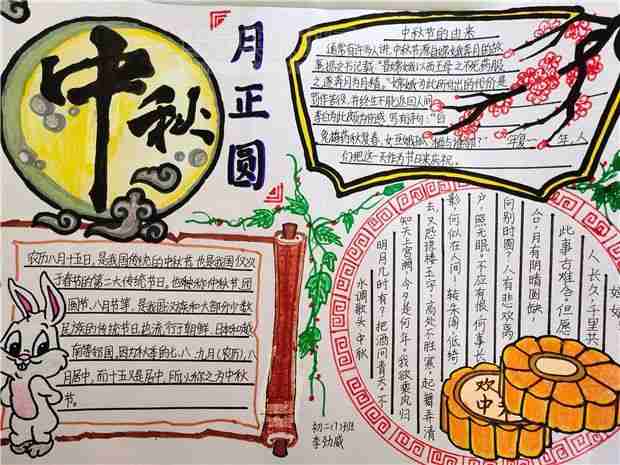 中秋
月正圆
中秋节的由来
通常有许多人讲,中秋节源自嫦娥奔月的故
事,据史书记载:"昔嫦娥以西王母之不死药服
之,遂奔月为月精。"嫦娥为此所付出的代价是
罚作苦役,并终生不能返回人间。
李白为此颇为伤感,写有诗句:"白
兔捣药秋复春,女亘娥孤栖与谁邻?" 年复一年,人
们把这一天作为节日来庆祝。
农历八月十五日,是我国传统的中秋节,也是我国仅次
于春节的第二大传统节日,也被称作中秋节,团
圆节,八月节等,是我国汉族和大部分少数
民族的传统节日,也流行于朝鲜、日本和越
南等邻国,因为秋季的七、八、九月(农历),八
月居中,而十五又是居中,所以称之为中秋
节。
水调歌头 中秋
明月几时有?把酒问青天。不
知天上宫阙,今夕是何年。我欲乘风归
去,又恐琼楼玉宇,高处不胜寒。起舞弄清
影,何似在人间!转朱阁,低绮
户,照无眠。不应有恨,何事长
向别时圆?人有悲欢离
合,月有阴晴圆缺,
此事古难全。但愿
人长久,千里共
欢
中
初二(1)班
李劲威